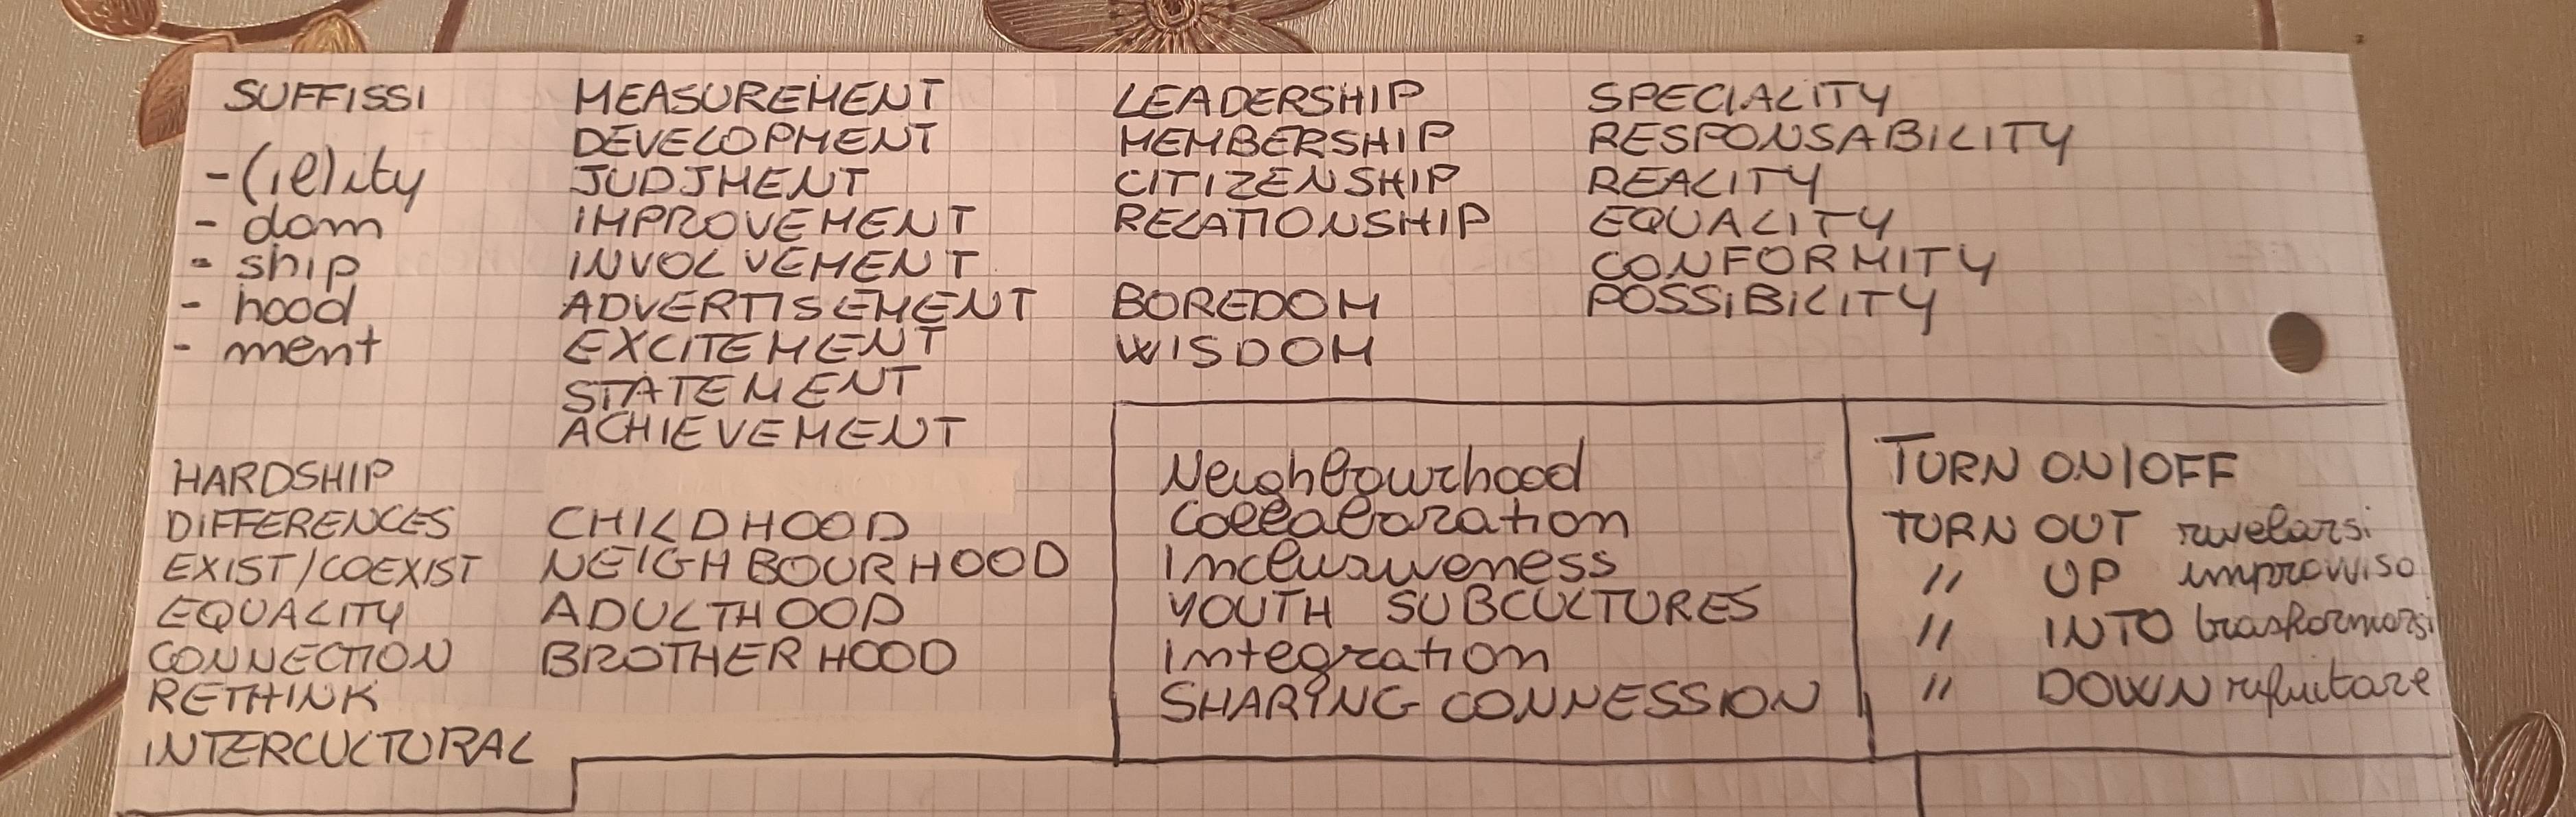 SUFFISSI
-(il)ity
- dom
- ship
- hood
- ment
MEASUREMENT
DEVELOPMENT
JUDJMENT
IMPROVEMENT
INVOLVEMENT
ADVERTISEMENT
EXCITEMENT
STATEMENT
ACHIEVEMENT
LEADERSHIP
MEMBERSHIP
CITIZENSHIP
RELATIONSHIP
BOREDOM
WISDOM
SPECIALITY
RESPONSABILITY
REALITY
EQUALITY
CONFORMITY
POSSIBILITY
HARDSHIP
DIFFERENCES
EXIST/COEXIST
EQUALITY
CONNECTION
RETHINK
INTERCULTURAL
CHILDHOOD
NEIGHBOURHOOD
ADULTHOOD
BROTHERHOOD
Neighbourhood
Collaboration
Inclusiveness
YOUTH SUBCULTURES
Integration
SHARING CONNESSION
TURN ON/OFF
TURN OUT rivelarsi
" UP improvviso
" INTO trasformarsi
" DOWN rifiutare